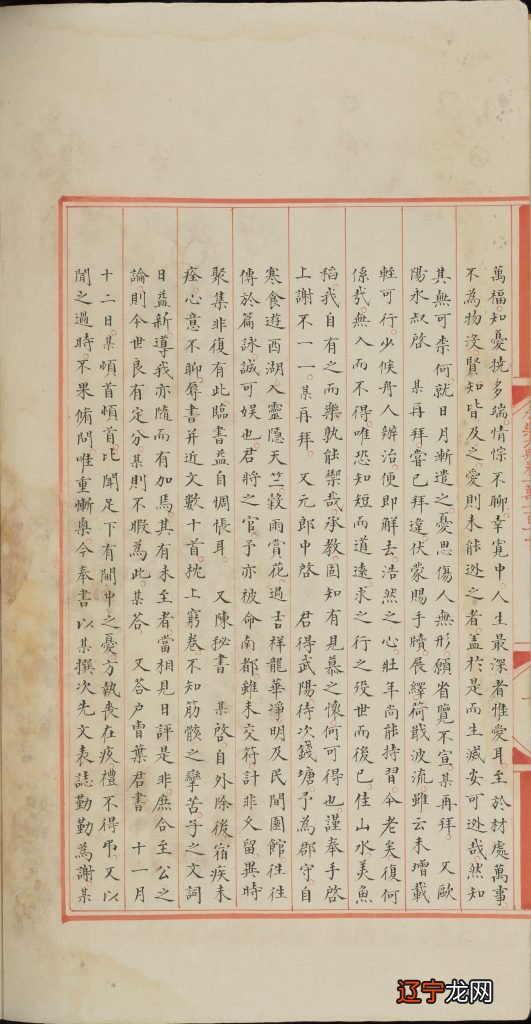 萬福知憂撓多端情悰不聊幸寬中人生最深者惟愛耳至於材處萬事
不為物沒賢知皆及之愛則未能逊之者蓋於是而生滅安可逊哉然知
其無可柰何就日月漸遣之憂思傷人無形願省覽不宣某再拜 又歐
陽永叔啓 某再拜嘗已拜違伏蒙賜手牘展繹荷戢波流雖云未增載
輕可行少候舟人辦治便即解去浩然之心壯年尚能持習今老矣復何
係㦲無入而不得唯恐知短而道遠求之行之殁世而後已佳山水美魚
稻我自有之而樂孰能禦哉承教固知有見慕之懷何可得也謹奉手啓
上謝不一一某再拜 又元郎中啓 君得武陽待次錢塘予為郡守自
寒食遊西湖入靈隱天竺穀雨賞花過吉祥龍華凈明及民間園館往往
傳於篇詠誠可娱也君將之官予亦被命南都雖未交符計非久留異時
聚集非復有此臨書益自惆悵耳 又陳秘書 某啓自外除後宿疾未
痊心意不聊辱書并近文數十首枕上窮卷不知筋骸之攣苦子之文詞
日益新導我亦隨而有加焉其有未至者當相見日評是非庶合至公之
論則今世良有定分某則不暇為此某荅 又荅户曹葉君書 十一月
十二日某頓首頓首比聞足下有閫中之憂方執喪在疚禮不得弔又以
聞之過時不果脩問唯重慚㮚今奉書以某撰次先文表誌勤勤為謝某
辽宁龙网